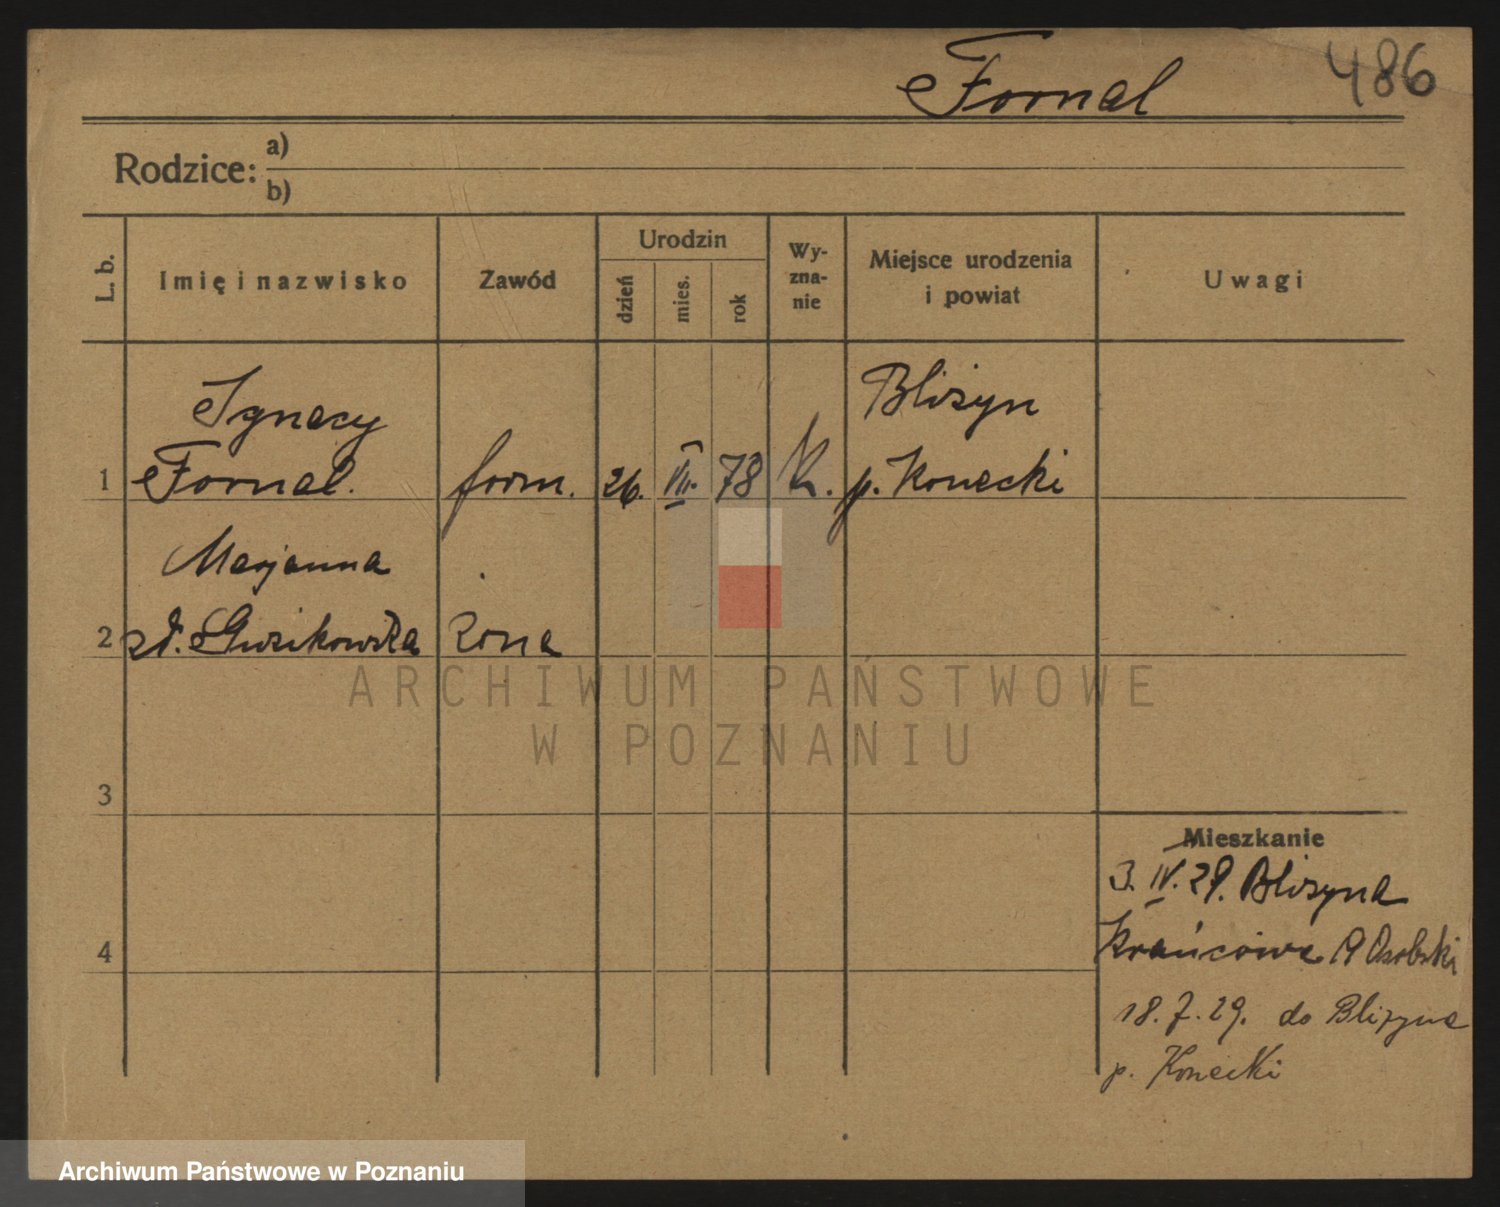 Fornal
486
Rodzice: a)
b)
L. b.
Imię i nazwisko
Zawód
Urodzin
dzień
mies.
rok
Wy-
zna-
nie
Miejsce urodzenia
i powiat
Uwagi
Ignacy
Bliżyn
1 Fornal. form. 26. VII. 78 K. p. Konecki
Marjanna
2 zd. Guzikowska żona
ARCHIWUM PAŃSTWOWE
W POZNANIU
3
Mieszkanie
3. IV. 29. Bliżyna
4
Krańcowa 9
18. 7. 29. do Bliżyna
p. Konecki
Archiwum Państwowe w Poznaniu